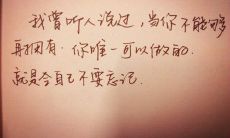 我曾听人说过,当你不能够
再拥有,你唯一可以做的.
就是令自己不要忘记.